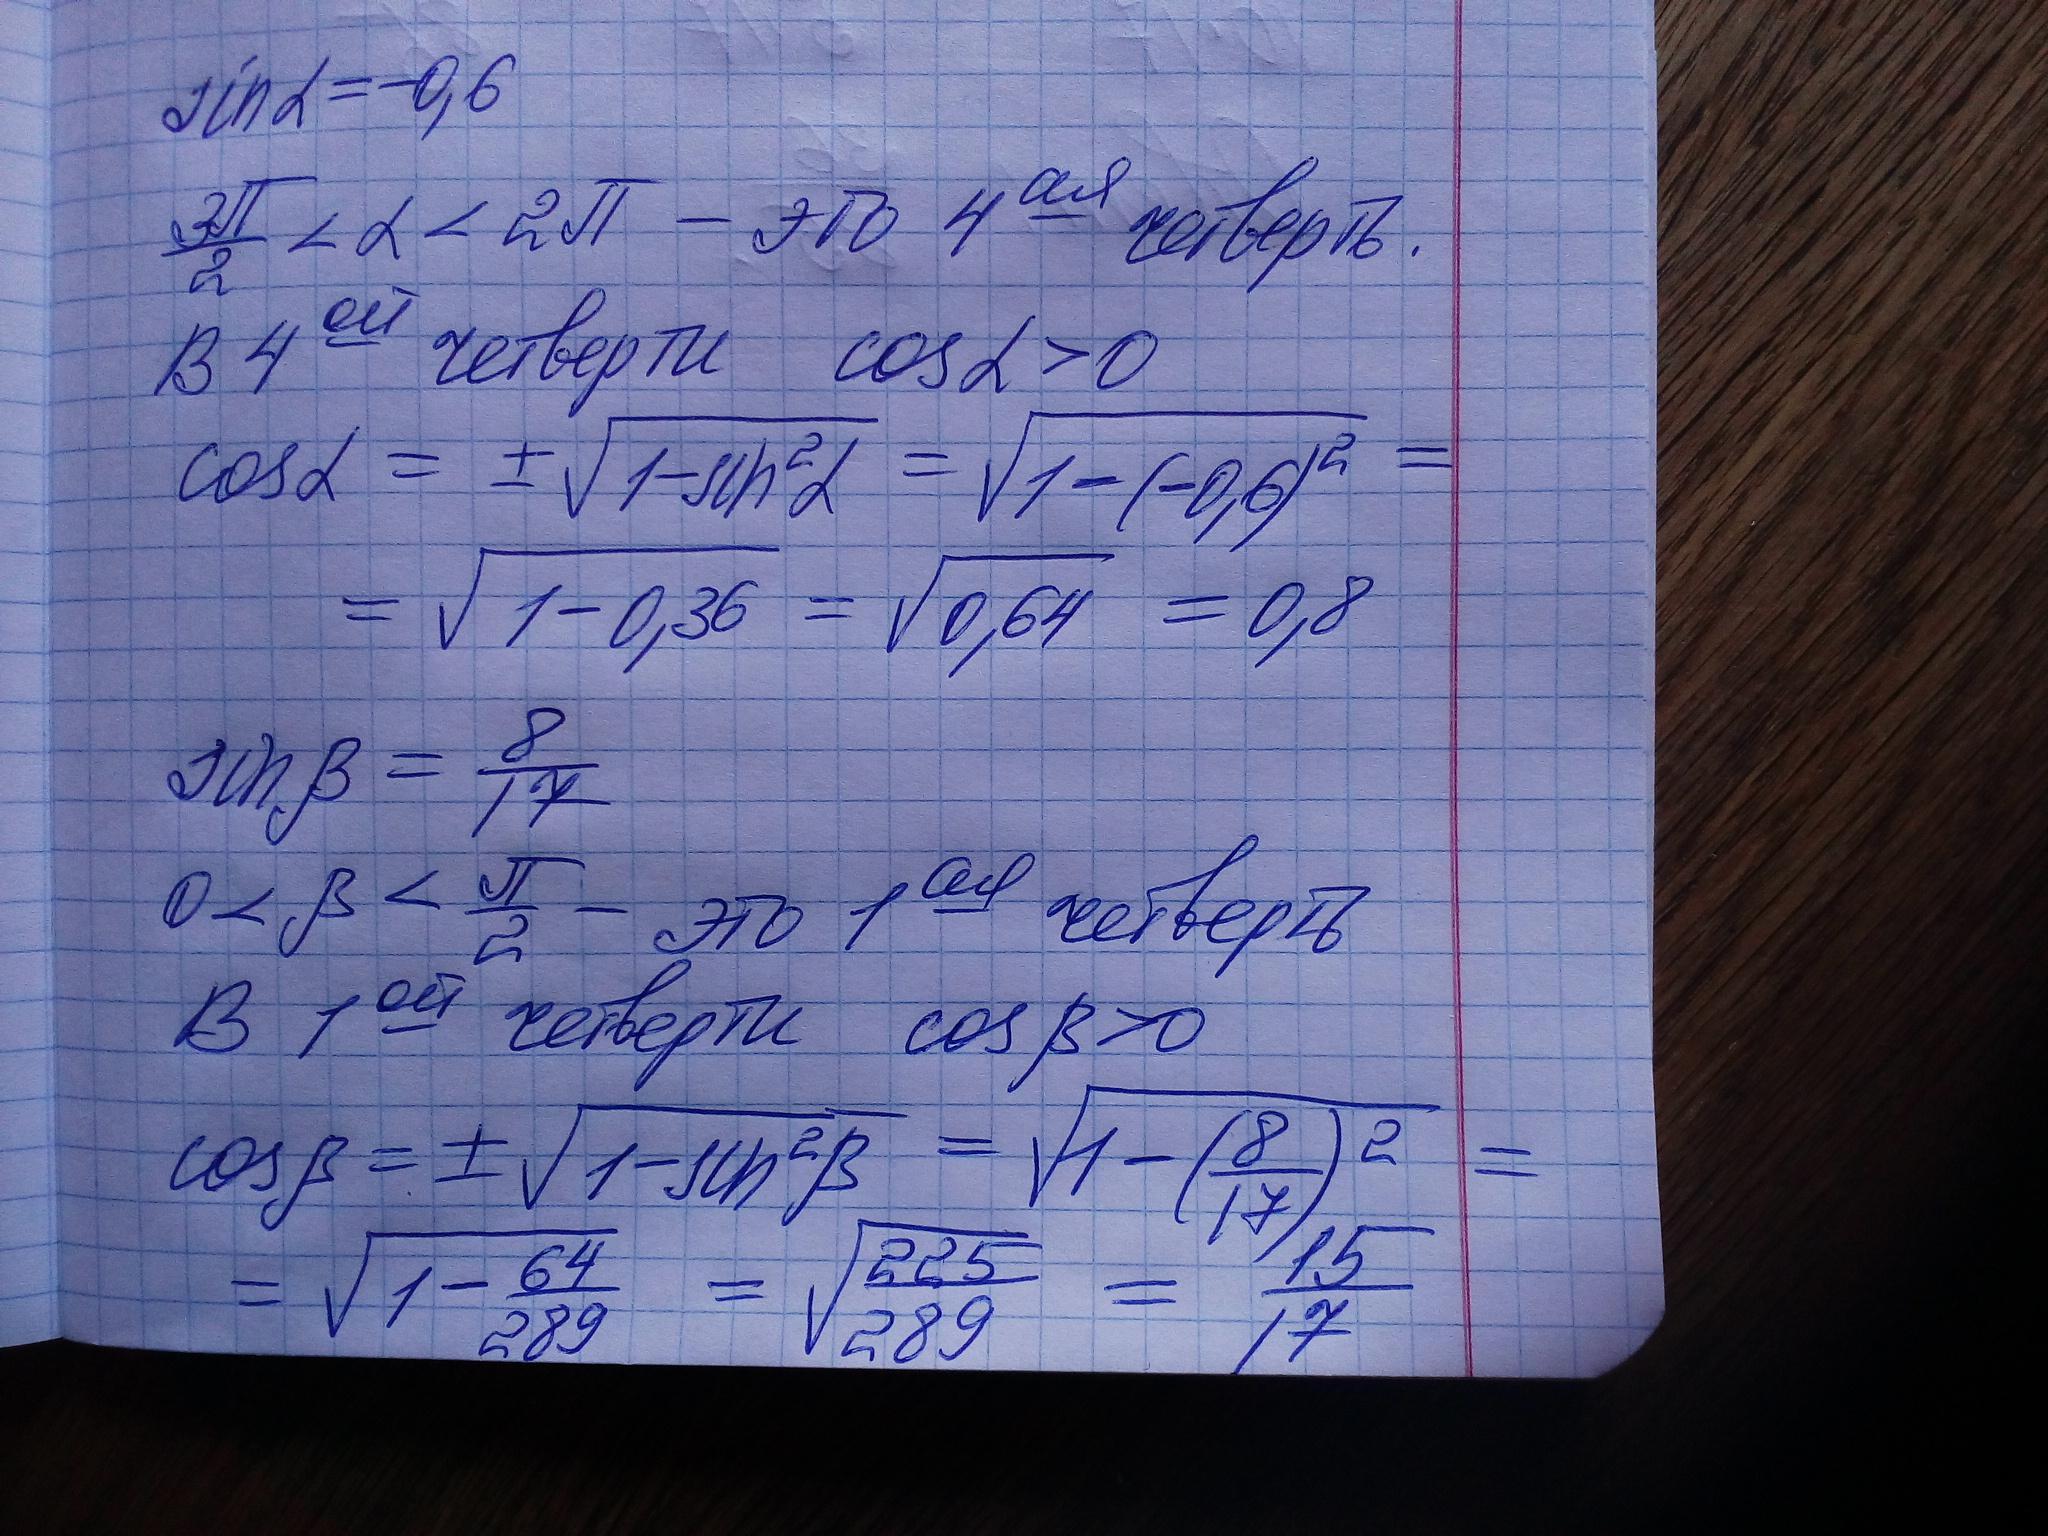 sinα = -0,6
3π/2 < α < 2π - это 4ая четверть.
В 4ой четверти cosα > 0
cosα = ±√(1-sin²α) = √(1-(-0,6)²) =
= √(1-0,36) = √0,64 = 0,8
sinβ = 8/17
0 < β < π/2 - это 1ая четверть
В 1ой четверти cosβ > 0
cosβ = ±√(1-sin²β) = √(1-(8/17)²) =
= √(1-64/289) = √(225/289) = 15/17